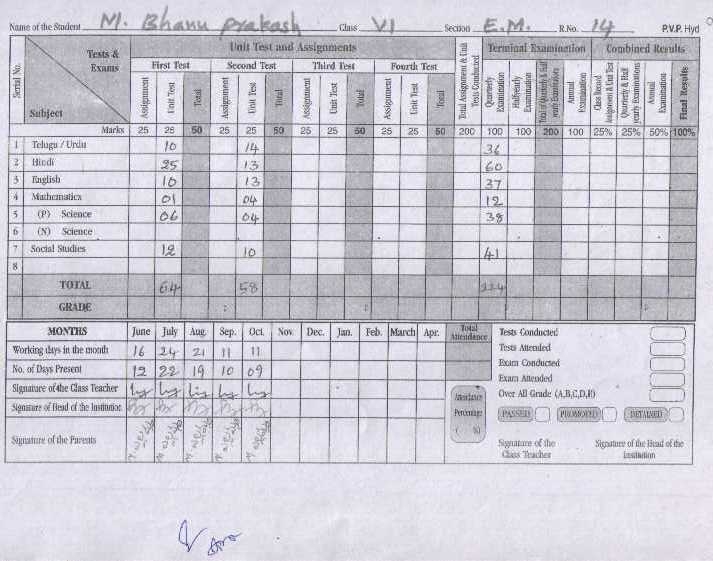 Name of the Student M. Bhanu Prakash Class VI Section E.M. R.No. 14 P.V.P. Hyd
Serial No. Tests & Exams Unit Test and Assignments Total Assignment & Unit Tests Conducted Terminal Examination Combined Results
First Test Second Test Third Test Fourth Test
Subject Assignment Unit Test Total Assignment Unit Test Total Assignment Unit Test Total Assignment Unit Test Total Quarterly Examination Halfyearly Examination Total of Quarterly & Half yearly Examinations Annual Examination Class Record Assignment & Unit Test Quarterly & Half yearly Examinations Annual Examination Final Results
Marks 25 25 50 25 25 50 25 25 50 25 25 50 200 100 100 200 100 25% 25% 50% 100%
1 Telugu / Urdu 10 14 36
2 Hindi 25 13 60
3 English 10 13 37
4 Mathematics 01 04 12
5 (P) Science 06 04 38
6 (N) Science
7 Social Studies 12 10 41
8
TOTAL 64 58
GRADE
MONTHS June July Aug. Sep. Oct. Nov. Dec. Jan. Feb. March Apr. Total Attendance
Working days in the month 16 24 21 11 11
No. of Days Present 12 22 19 10 09
Signature of the Class Teacher
Signature of Head of the Institution
Signature of the Parents
Attendance Percentage ( %)
Tests Conducted
Tests Attended
Exam Conducted
Exam Attended
Over All Grade (A,B,C,D,E)
PASSED PROMOTED DETAINED
Signature of the Class Teacher
Signature of the Head of the Institution